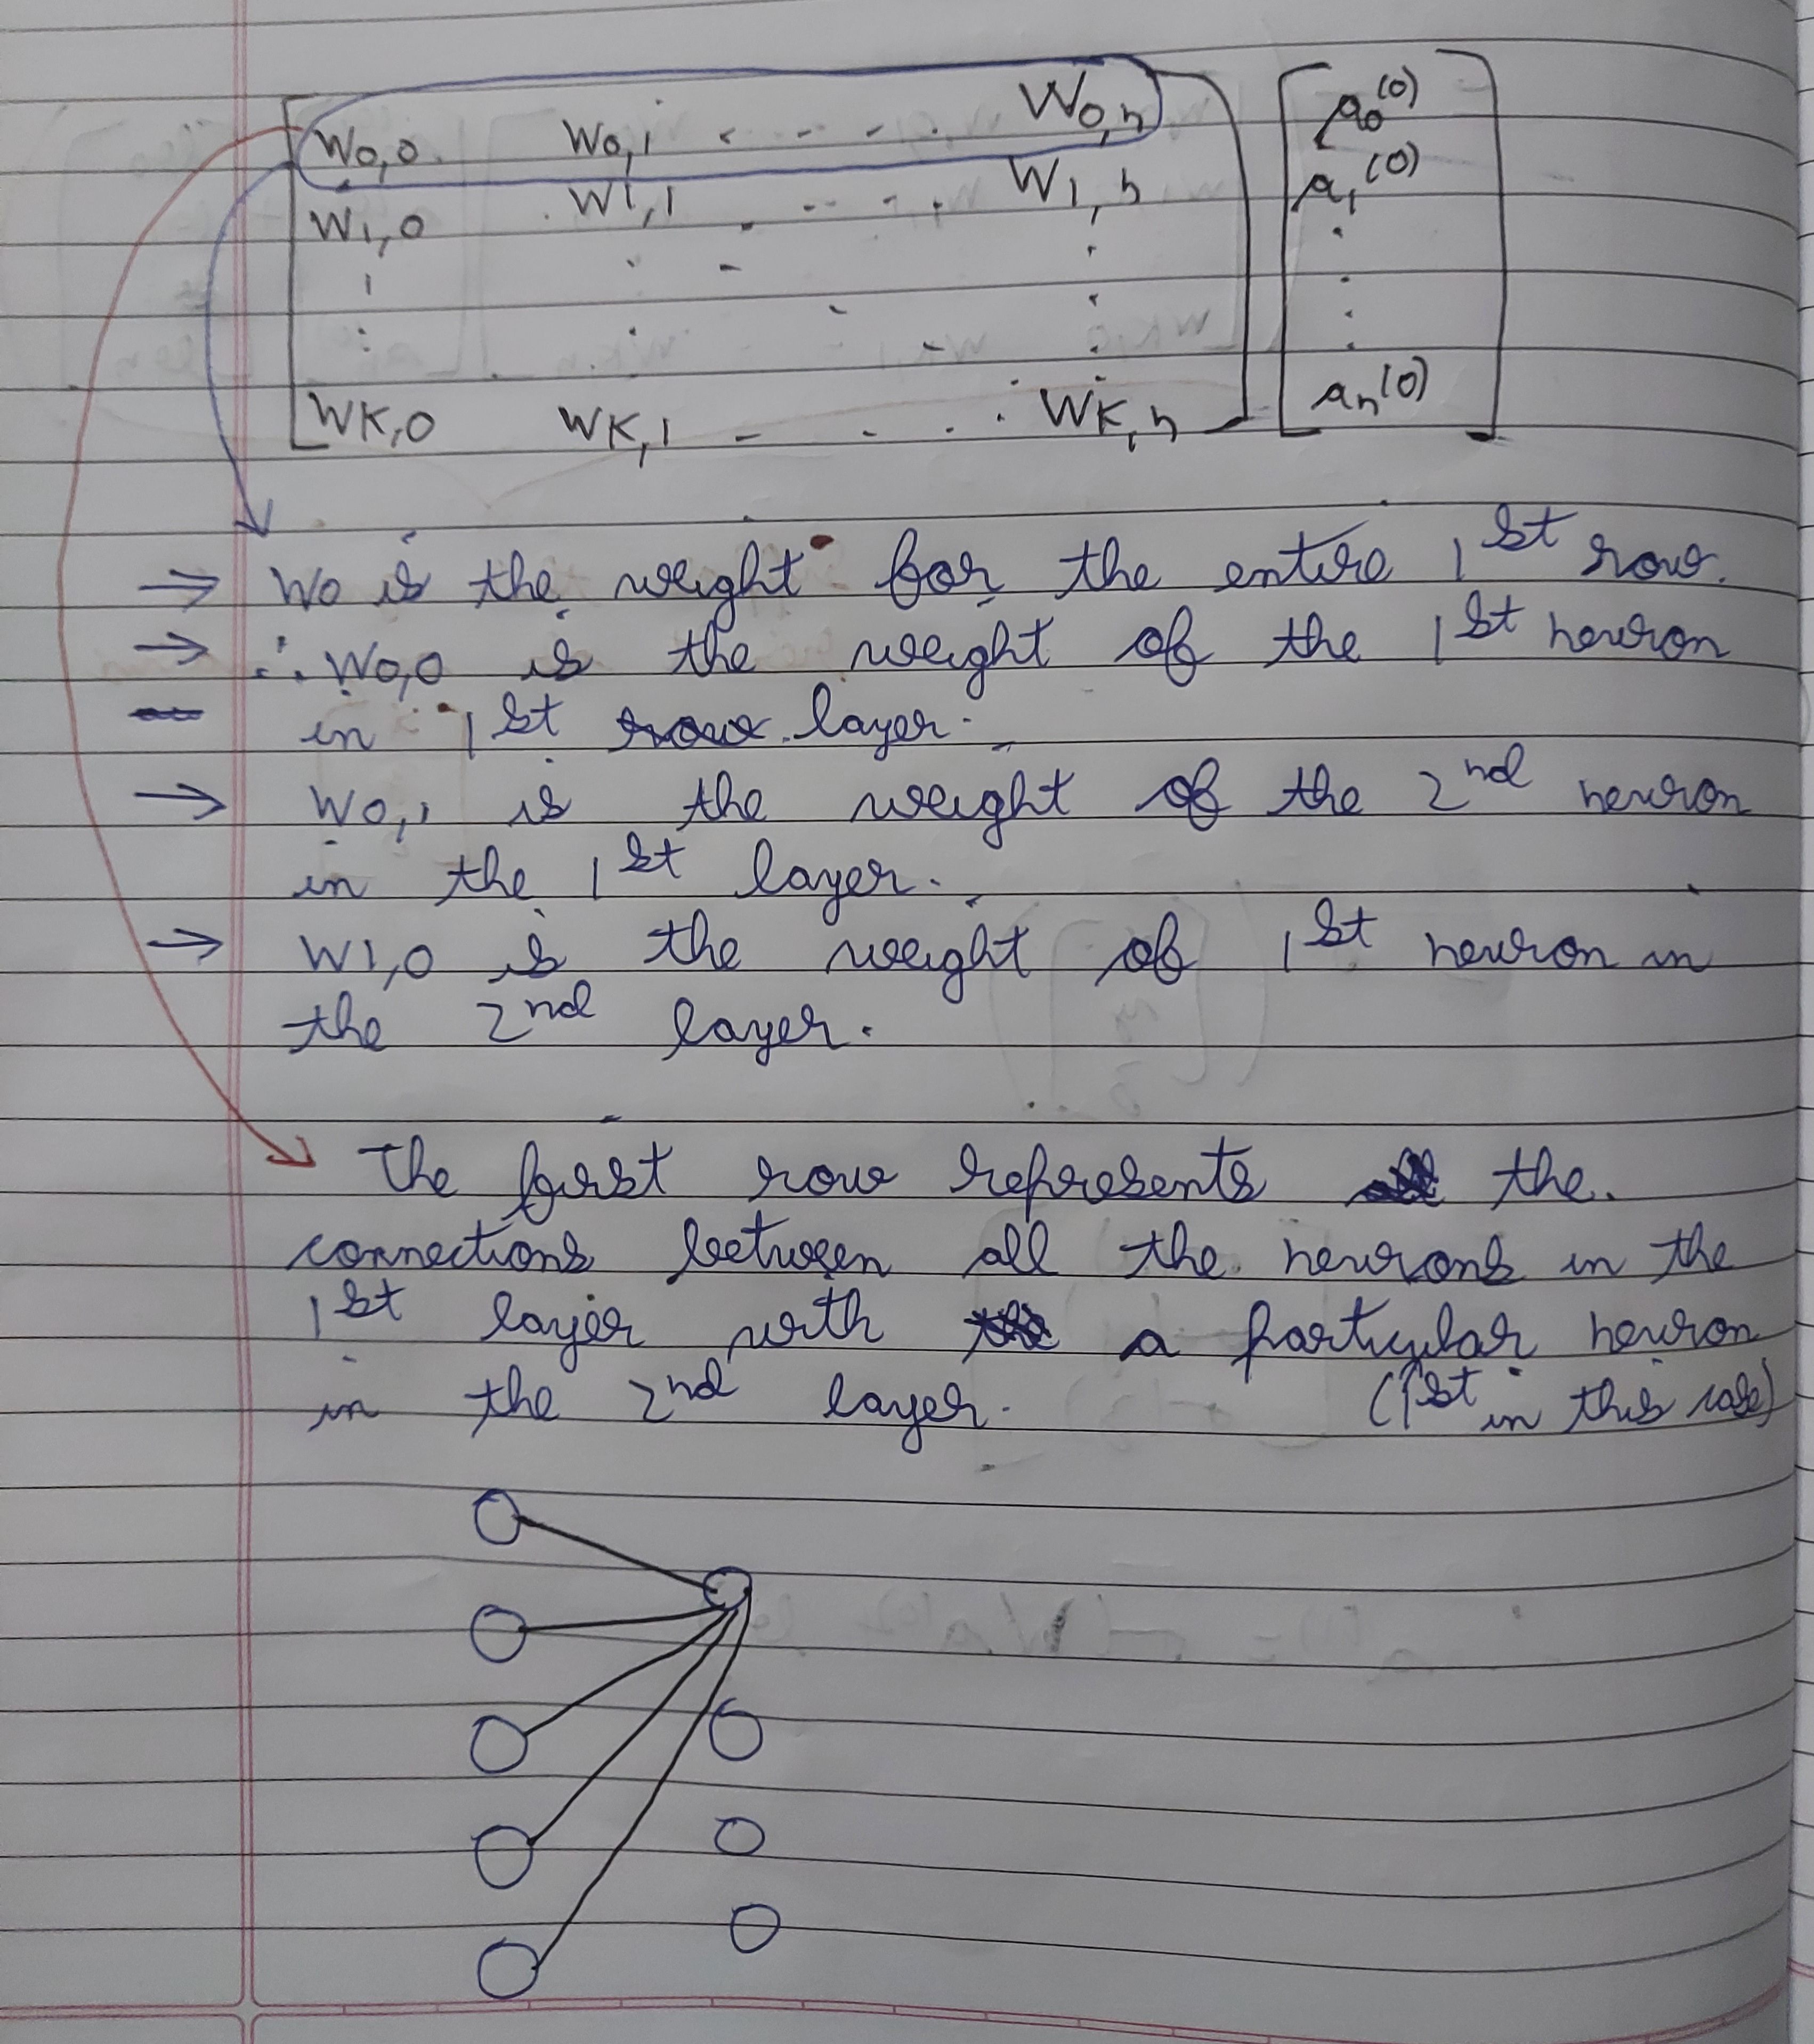 W0,0 W0,1 - - - - . W0,n a0(0)
W1,0 W1,1 . - - - . W1,n a1(0)
WK,0 WK,1 - . . . WK,n an(0)
→ W0 is the weight for the entire 1st row.
→ ∴ W0,0 is the weight of the 1st neuron
in 1st row layer.
→ W0,1 is the weight of the 2nd neuron
in the 1st layer.
→ W1,0 is the weight of 1st neuron in
the 2nd layer.
The first row represents all the
connections between all the neurons in the
1st layer with the a particular neuron
in the 2nd layer. (1st in this case)